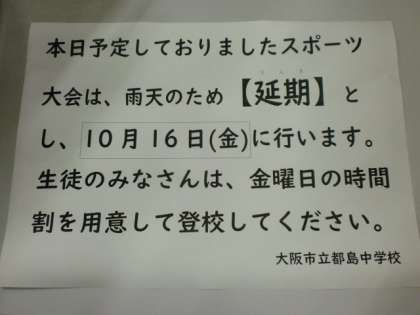 本日予定しておりましたスポーツ
大会は、雨天のため【延期】と
し、10月16日(金)に行います。
生徒のみなさんは、金曜日の時間
割を用意して登校してください。
大阪市立都島中学校